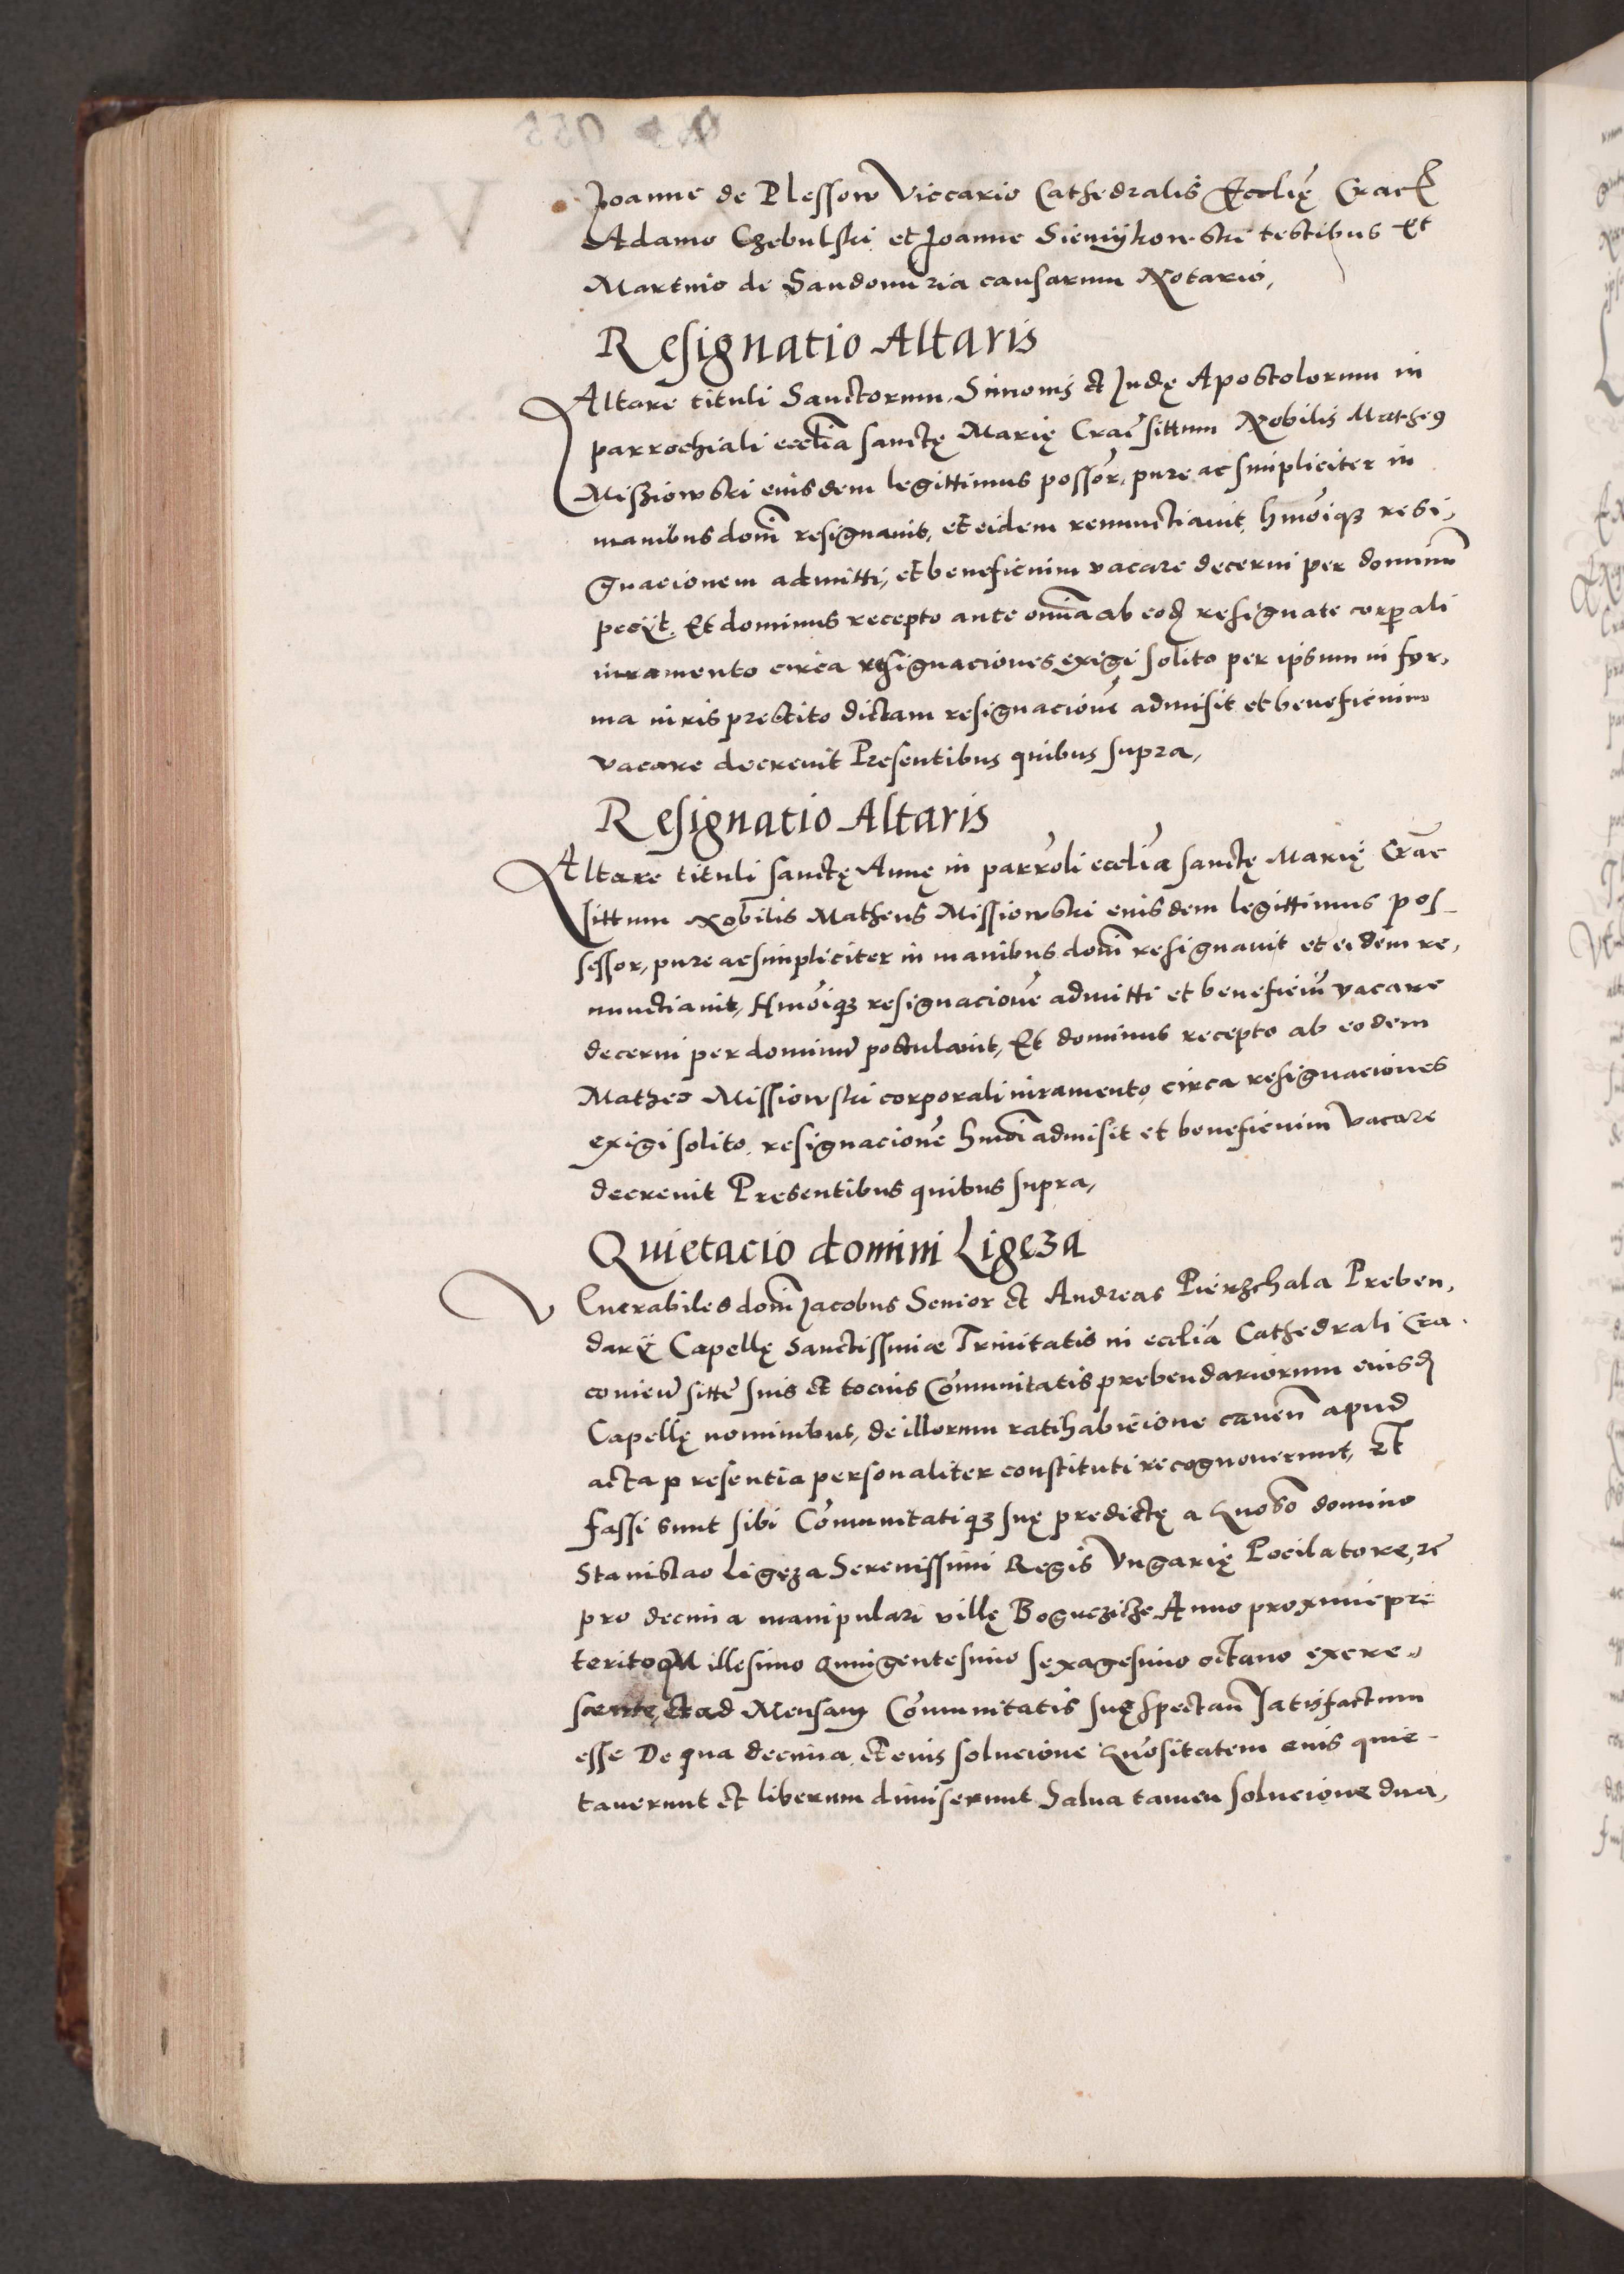 Joanne de Plessow Viccario Cathedralis Ecclię Crac
Adamo Czebulski et Joanne Sieniykowski testibus Et
Martino de Sandomiria causarum Notario,
Resignatio Altaris
Altare tituli Sanctorum Simonis et Judę Apostolorum in
parrochiali ecclia sanctę Marię Crac sittum Nobilis Matheus
Misziowski eiusdem legittimus possor, pure ac simpliciter in
manibus domi resignavit, et eidem renunctiavit, hmoiqz resi,
gnacionem admitti, et beneficium vacare decerni per dominum
peciit. Et dominus recepto ante omnia ab eod resignate corpali
iuramento circa resignaciones exigi solito per ipsum in for,
ma iuris prestito dictam resignacione admisit et beneficium
vacare decrevit Presentibus quibus supra,
Resignatio Altaris
Altare tituli sanctę Annę in parroli ecclia sanctę Marię Crac
sittum Nobilis Matheus Missiowski eiusdem legittimus pos-
sessor, pure ac simpliciter in manibus domi resignavit et eidem re,
nunctiavit, Hmoiqz resignacione admitti et beneficiu vacare
decerni per dominu postulavit, Et dominus recepto ab eodem
Matheo Missiowski corporali iuramento, circa resignaciones
exigi solito, resignacione hmoi admisit et beneficium vacare
decrevit Presentibus quibus supra,
Quietacio domini Ligęza
Venerabiles domi Jacobus Senior et Andreas Pierzchala Preben,
darii Capellę Sanctissimæ Trinitatis in ecclia Cathedrali Cra.
covien sitte suis et tocius Comunitatis prebendariorum eiusd
Capellę nominibus, de illorum ratihabicione caven apud
acta presentia personaliter constituti recognoverunt, Et
fassi sunt sibi Comunitatiqz suę predictę a Gnoso domino
Stanislao Ligęza Serenissimi Regis Vngarię Pocilatore, re
pro decima manipulari villę Boguczicze Anno proxime pre
terito Millesimo Quingentesimo sexagesimo octavo excre,
scente, et ad Mensam Comunitatis suę spectan satisfactum
esse De qua decima, et eius solucione Gnositatem eius quie-
taverunt et liberum dimiserunt Salva tamen solucione dua,